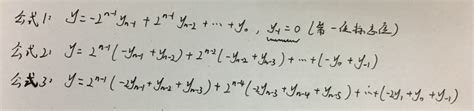 公式1: y=-2ⁿ⁻¹yₙ₋₁+2ⁿ⁻²yₙ₋₂+…+y₀, y₋₁=0 (第一位标志位)
公式2: y=2ⁿ⁻¹(-yₙ₋₁+yₙ₋₂)+2ⁿ⁻²(-yₙ₋₂+yₙ₋₃)+…+(-y₀+y₋₁)
公式3: y=2ⁿ⁻¹(-2yₙ₋₁+yₙ₋₂+yₙ₋₃)+2ⁿ⁻⁴(-2yₙ₋₃+yₙ₋₄+yₙ₋₅)+…+(-2y₁+y₀+y₋₁)